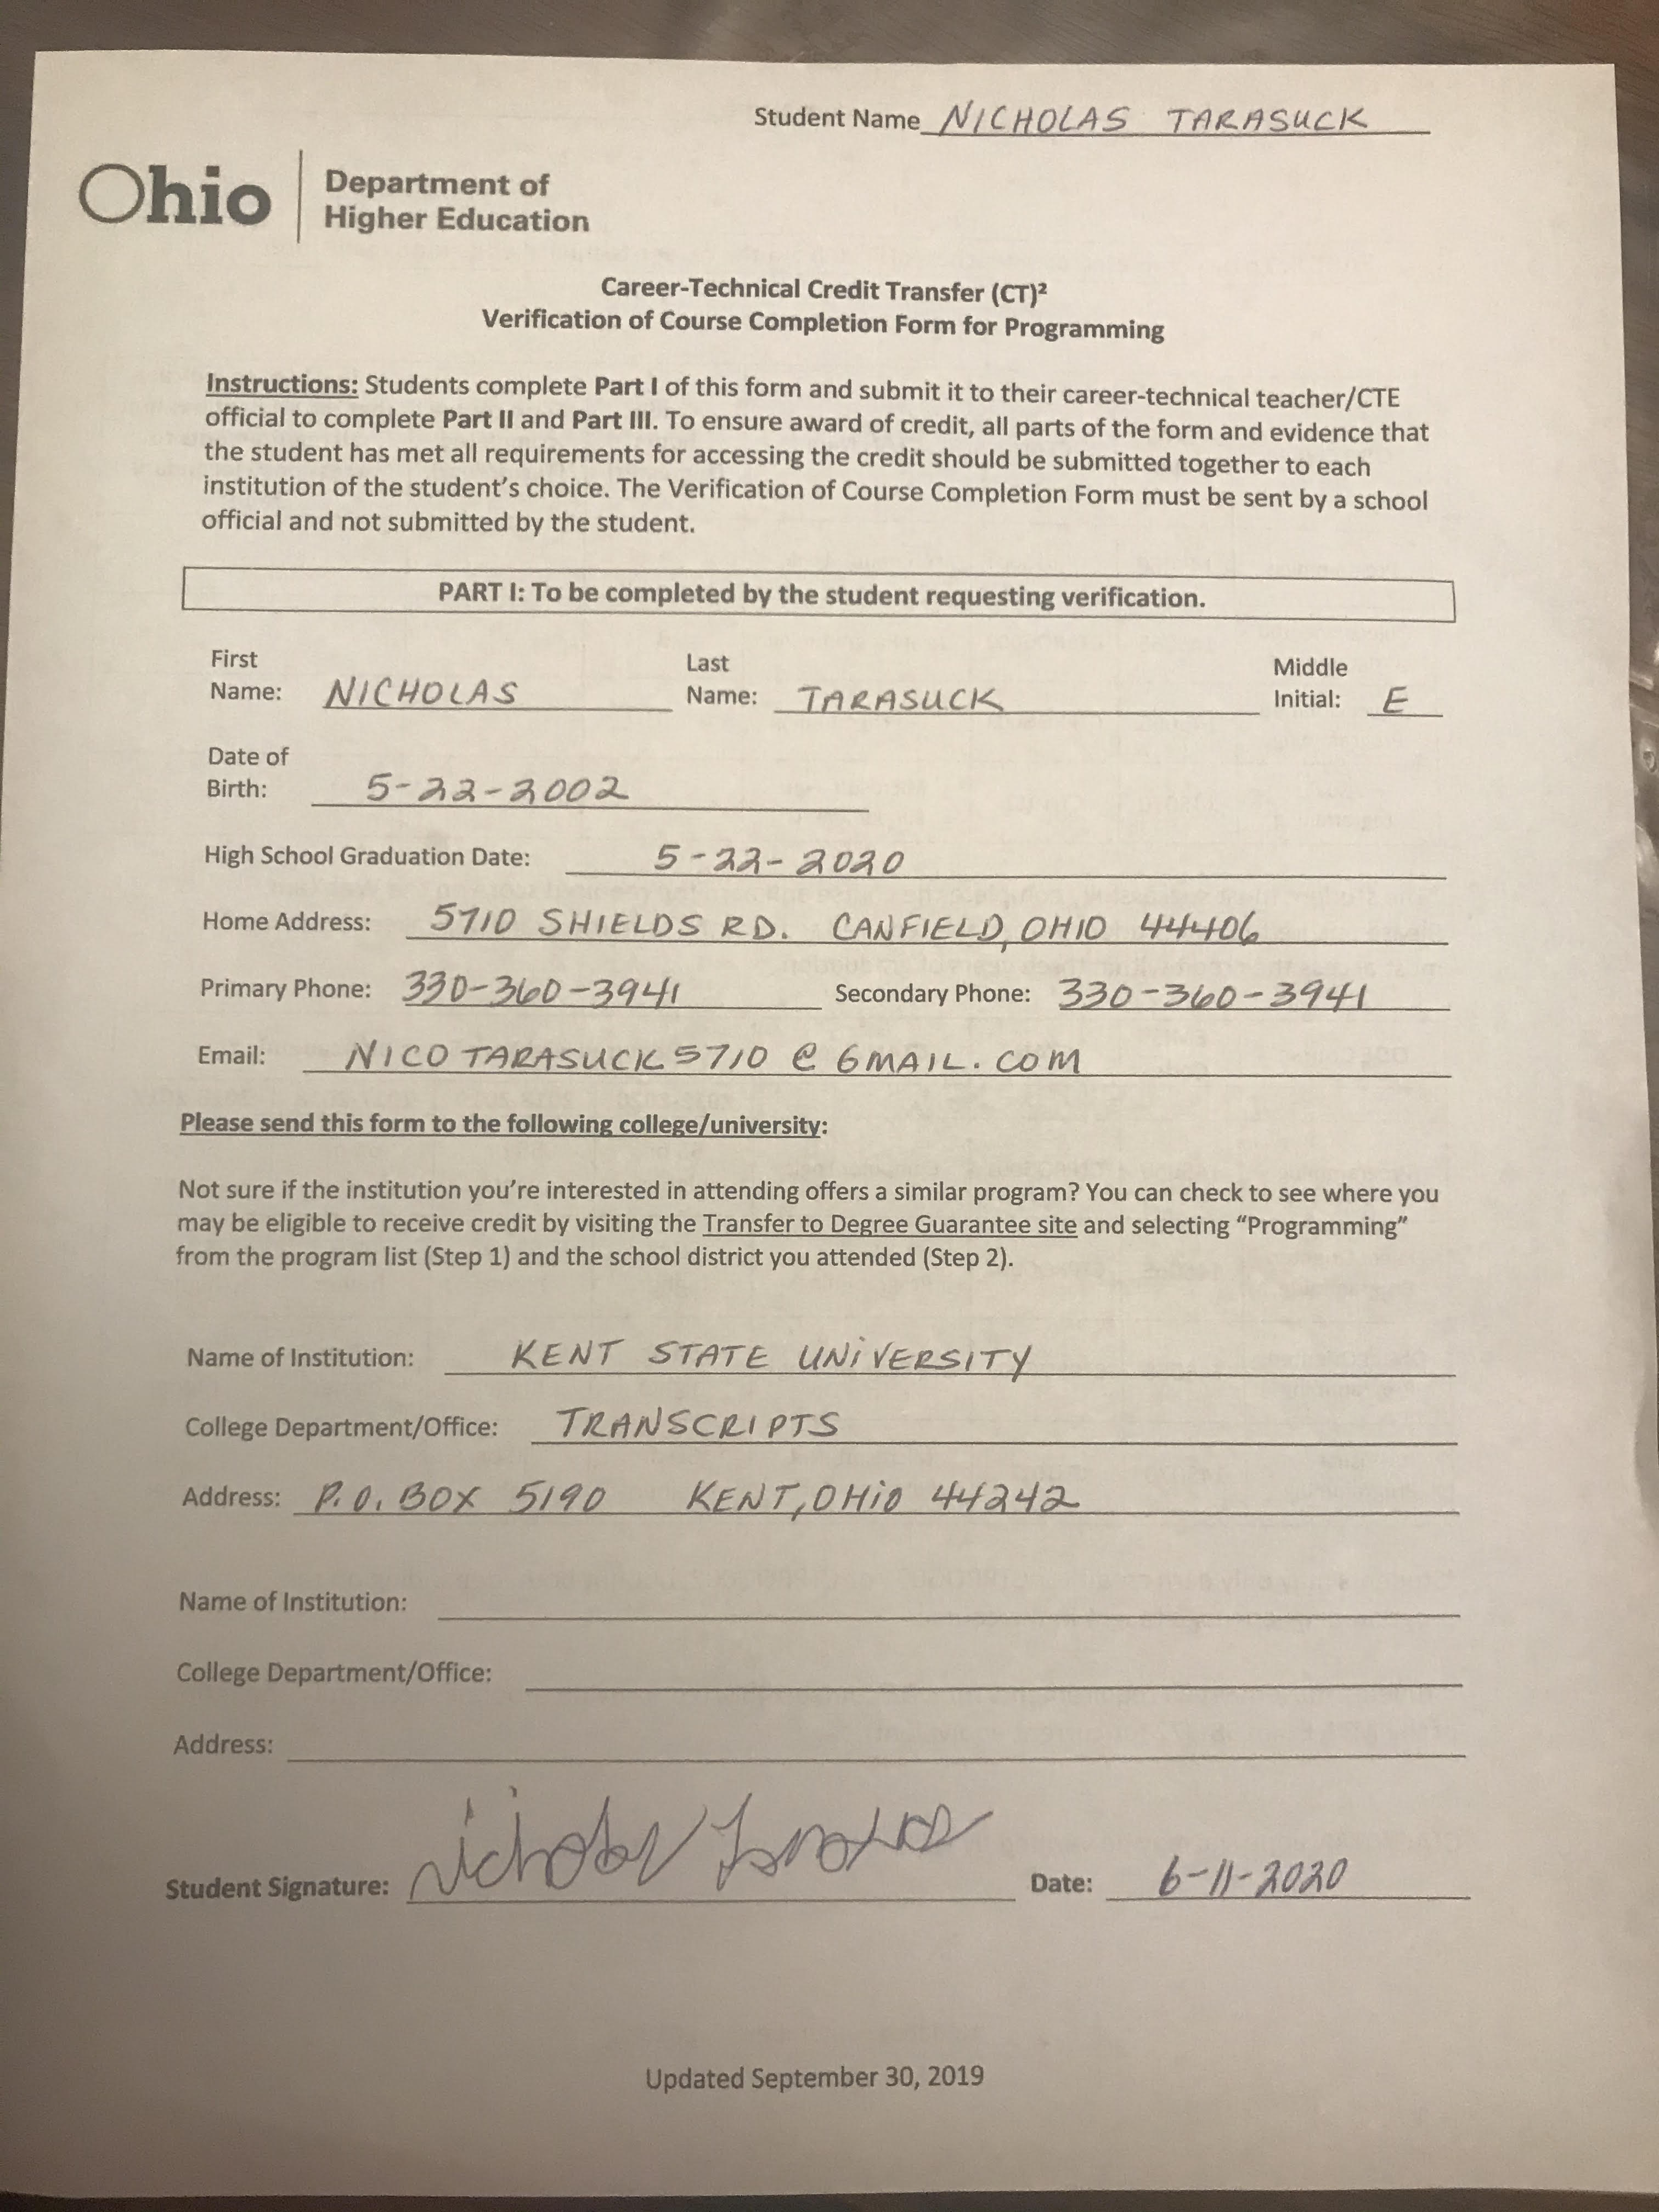 Student Name NICHOLAS TARASUCK
Ohio
Department of
Higher Education
Career-Technical Credit Transfer (CT)²
Verification of Course Completion Form for Programming
Instructions: Students complete Part I of this form and submit it to their career-technical teacher/CTE
official to complete Part II and Part III. To ensure award of credit, all parts of the form and evidence that
the student has met all requirements for accessing the credit should be submitted together to each
institution of the student's choice. The Verification of Course Completion Form must be sent by a school
official and not submitted by the student.
PART I: To be completed by the student requesting verification.
First
Name: NICHOLAS
Last
Name: TARASUCK
Middle
Initial: E
Date of
Birth: 5-22-2002
High School Graduation Date: 5-22-2020
Home Address: 5710 SHIELDS RD. CANFIELD, OHIO 44406
Primary Phone: 330-360-3941 Secondary Phone: 330-360-3941
Email: NICO TARASUCK5710 @ GMAIL.COM
Please send this form to the following college/university:
Not sure if the institution you're interested in attending offers a similar program? You can check to see where you
may be eligible to receive credit by visiting the Transfer to Degree Guarantee site and selecting "Programming"
from the program list (Step 1) and the school district you attended (Step 2).
Name of Institution: KENT STATE UNIVERSITY
College Department/Office: TRANSCRIPTS
Address: P.O. BOX 5190 KENT, OHIO 44242
Name of Institution:
College Department/Office:
Address:
Student Signature: Date: 6-11-2020
Updated September 30, 2019